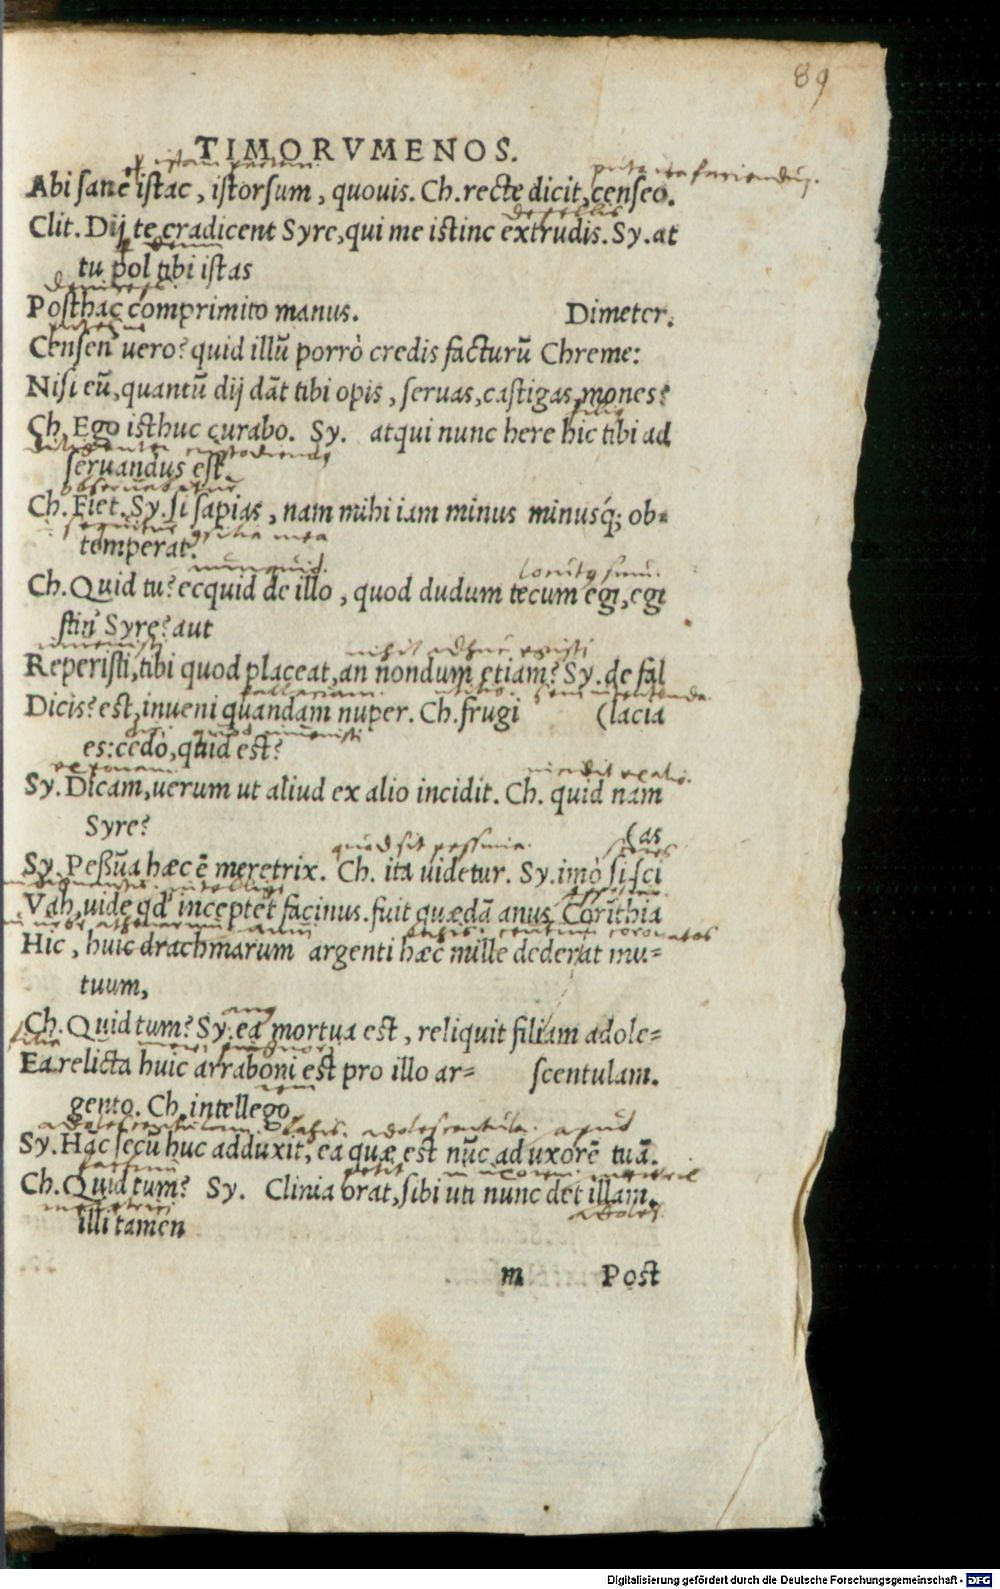 89
TIMORVMENOS.
Abi sanē istac, istorsum, quouis. Ch. recte dicit, censeo.
depellis
Clit. Dij te eradicent Syre, qui me istinc extrudis. Sy. at
tu pol tibi istas
Posthac comprimito manus. Dimeter.
Censen' uero? quid illū porrò credis facturū Chreme:
Nisi eū, quantū dij dāt tibi opis, seruas, castigas, mones?
Ch. Ego isthuc curabo. Sy. atqui nunc here hic tibi ad
seruandus est.
Ch. Fiet. Sy. si sapias, nam mihi iam minus minusq́; ob=
temperat.
nunquid.
Ch. Quid tu? ecquid de illo, quod dudum tecum egi, egi
stin' Syre? aut
inuenisti nihil adhuc
Reperisti, tibi quod placeat, an nondum etiam? Sy. de fal
fallaciam.
Dicis? est, inueni quandam nuper. Ch. frugi (lacia
quod inuenisti
es: cedo, quid est?
Sy. Dicam, uerum ut aliud ex alio incidit. Ch. quid nam
Syre? (as
quod sit pessima.
Sy. Peßūa hæc ē meretrix. Ch. ita uidetur. Sy. imò si sci
Vah, uide qd' inceptet facinus. fuit quædā anus Corīthia
coronatos
Hic, huic drachmarum argenti hæc mille dederat mu=
tuum,
anus
Ch. Quid tum? Sy. ea mortua est, reliquit filiam adole=
filia
Ea relicta huic arraboni est pro illo ar= scentulam.
rem
gento. Ch. intellego.
adolescentulam adolescentula. apud
Sy. Hāc secū huc adduxit, ea quæ est nūc ad uxorē tuā.
petit
Ch. Quid tum? Sy. Clinia orat, sibi uti nunc det illam,
meretrici
illi tamen
m Post
Digitalisierung gefördert durch die Deutsche Forschungsgemeinschaft - DFG